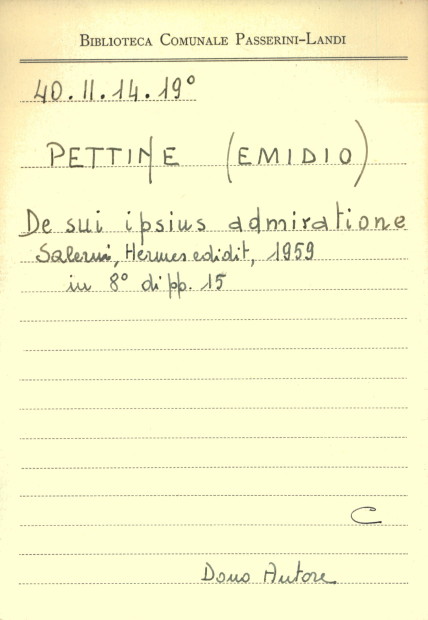 BIBLIOTECA COMUNALE PASSERINI-LANDI
40.II.14.19°
PETTINE (EMIDIO)
De sui ipsius admiratione
Salerni, Hermes edidit, 1959
in 8° di pp. 15
C
Dono Autore